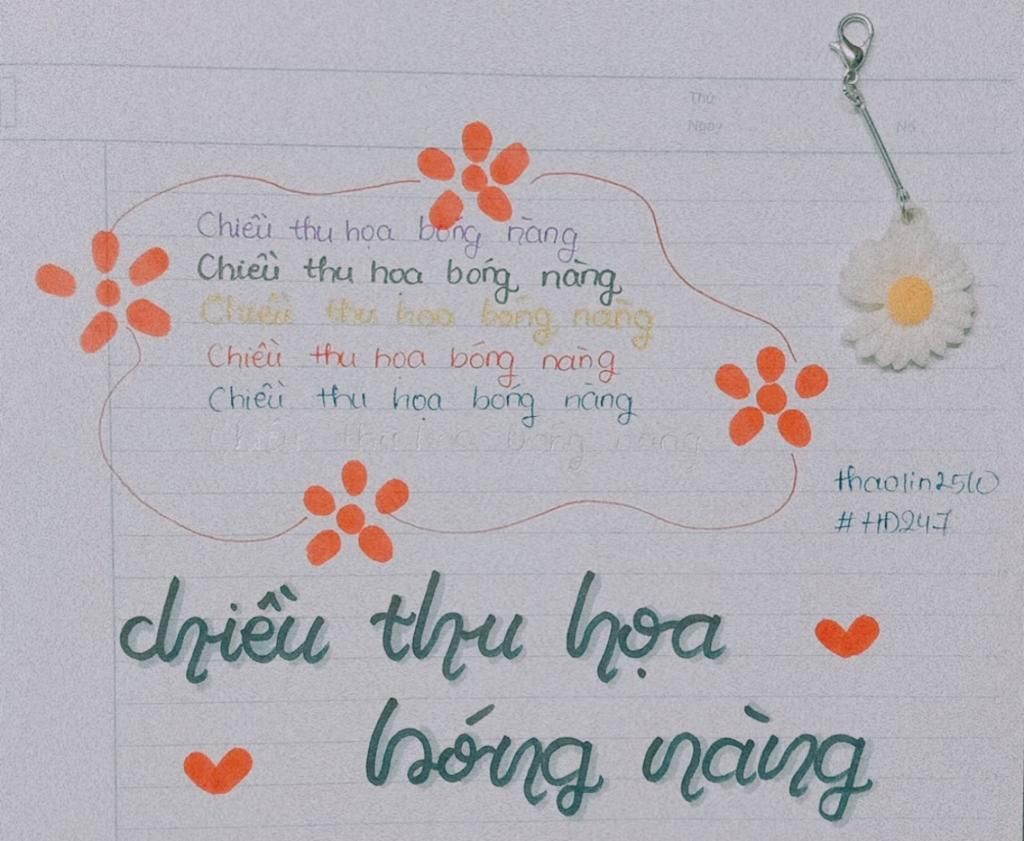 Thứ
Ngày
Nº
Chiều thu họa bóng nàng
Chiều thu hoa bóng nàng
Chiều thu hoa bóng nàng
Chiều thu hoa bóng nàng
Chiều thu họa bóng nàng
Chiều thu họa bóng nàng
thaolin2510
#HD247
chiều thu họa
bóng nàng